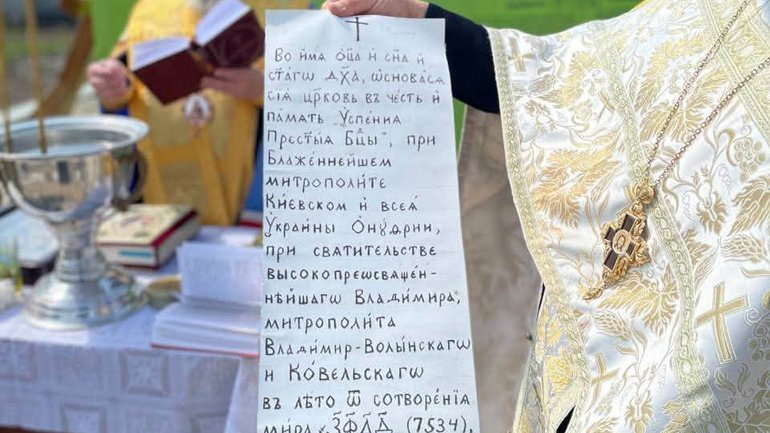 Во и҆́мѧ ѻ҆ц҃а̀ и҆ сн҃а и҆
ст҃а́гѡ дх҃а, ѡ҆снова́сѧ
сїѧ̀ цр҃ковь въ че́сть и҆
па́мѧть „Оу҆спе́нїѧ
Прест҃ы́ѧ Бц҃ы", при
Блаже́ннѣйшем
митрополи́те
Кі́евском и҆ всеѧ̀
Украи́ны Ѻ҆ну́фрїи,
при свѧти́тельстве
высокопреѡсвѧще́н-
нѣйшагѡ Влади́мира,
митрополи́та
Влади́мир-Волы́нскагѡ
и Ко́вельскагѡ
въ лѣ́то ѿ сотворе́нїѧ
ми́ра ҂З҃Ф҃Л҃Д҃ (7534),